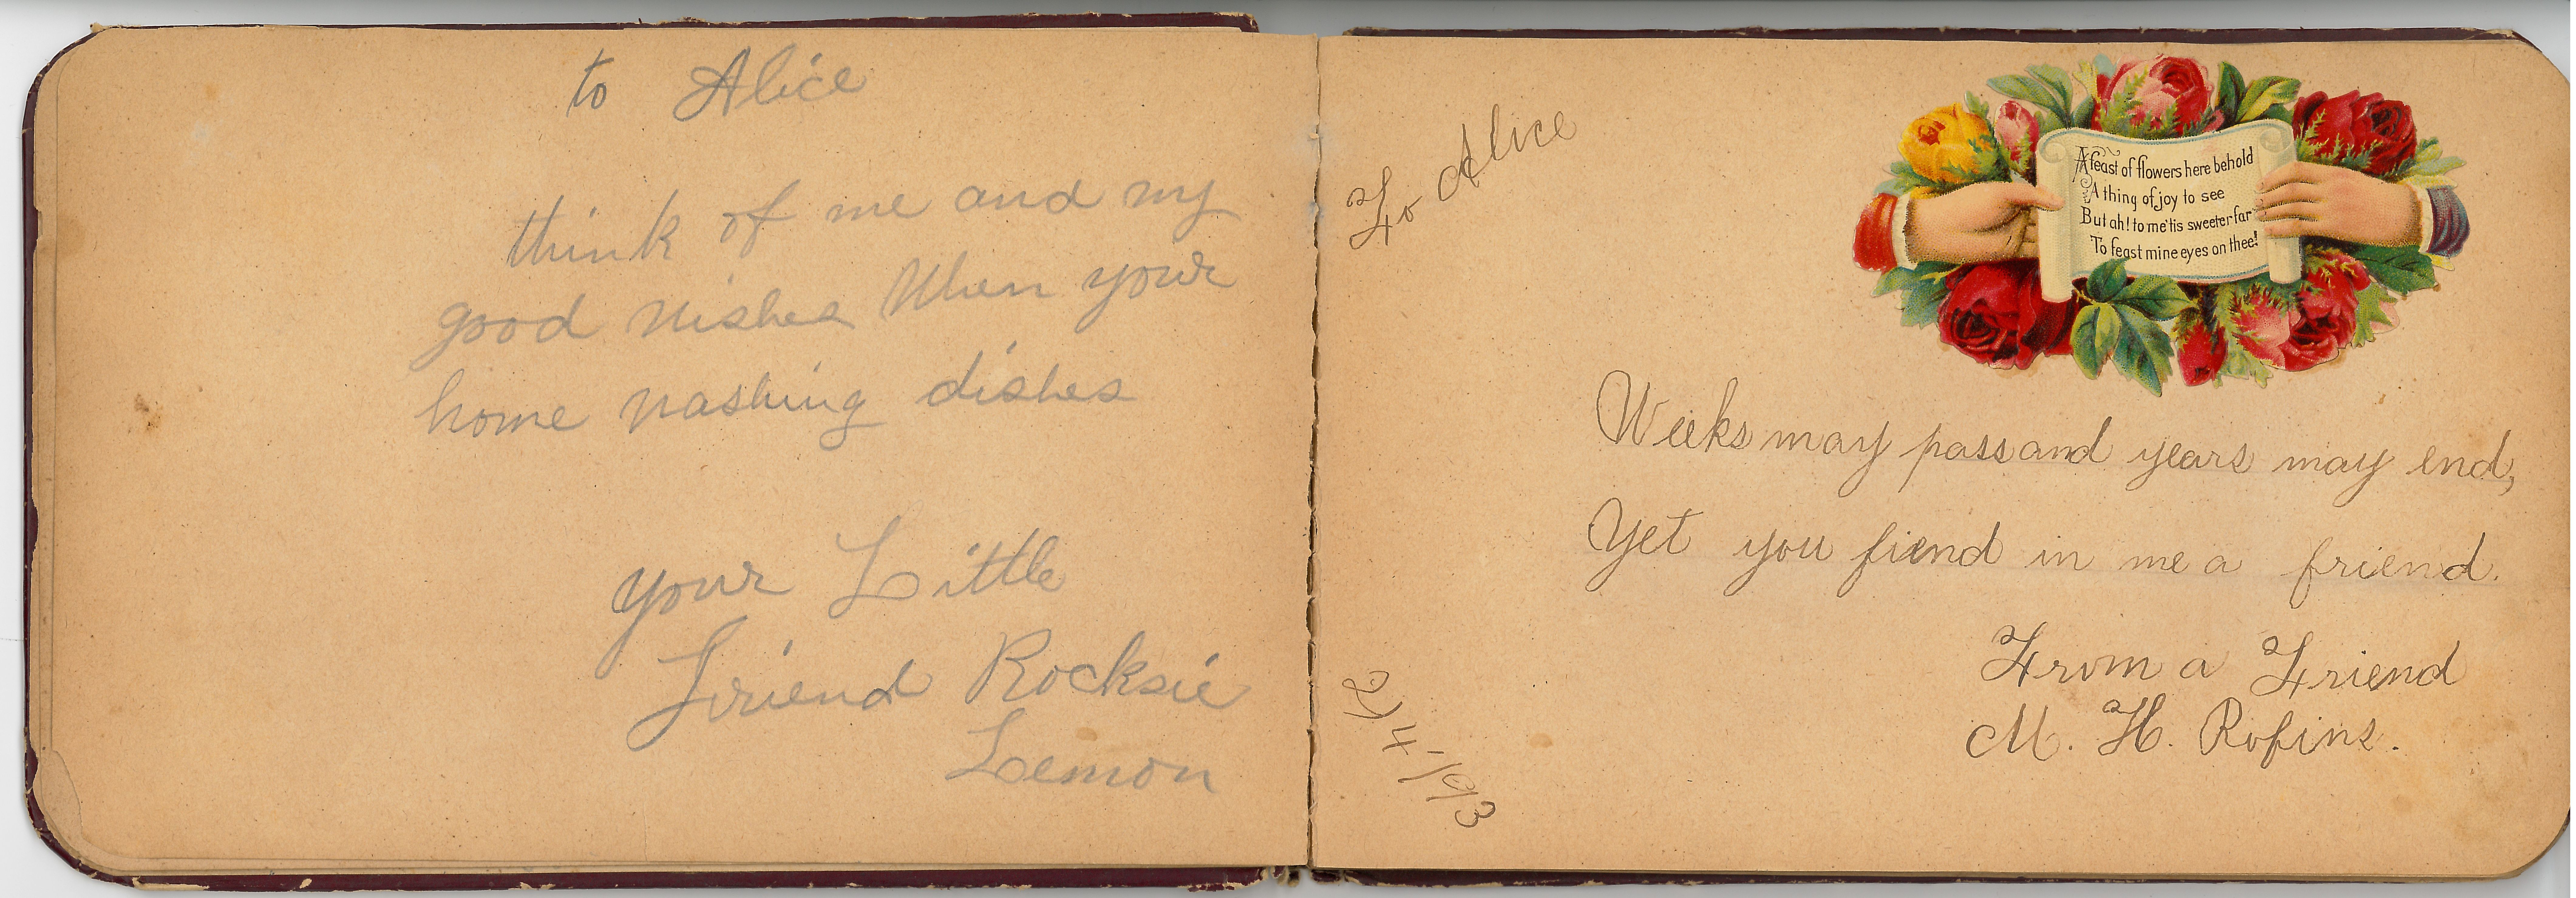 to Alice
think of me and my
good wishes When your
home washing dishes
your Little
Friend Rocksie
Lemon
To Alice
A feast of flowers here behold
A thing of joy to see
But ah! to me 'tis sweeter far
To feast mine eyes on thee!
Weeks may pass and years may end,
Yet you fiend in me a friend.
From a Friend
M. H. Rofins.